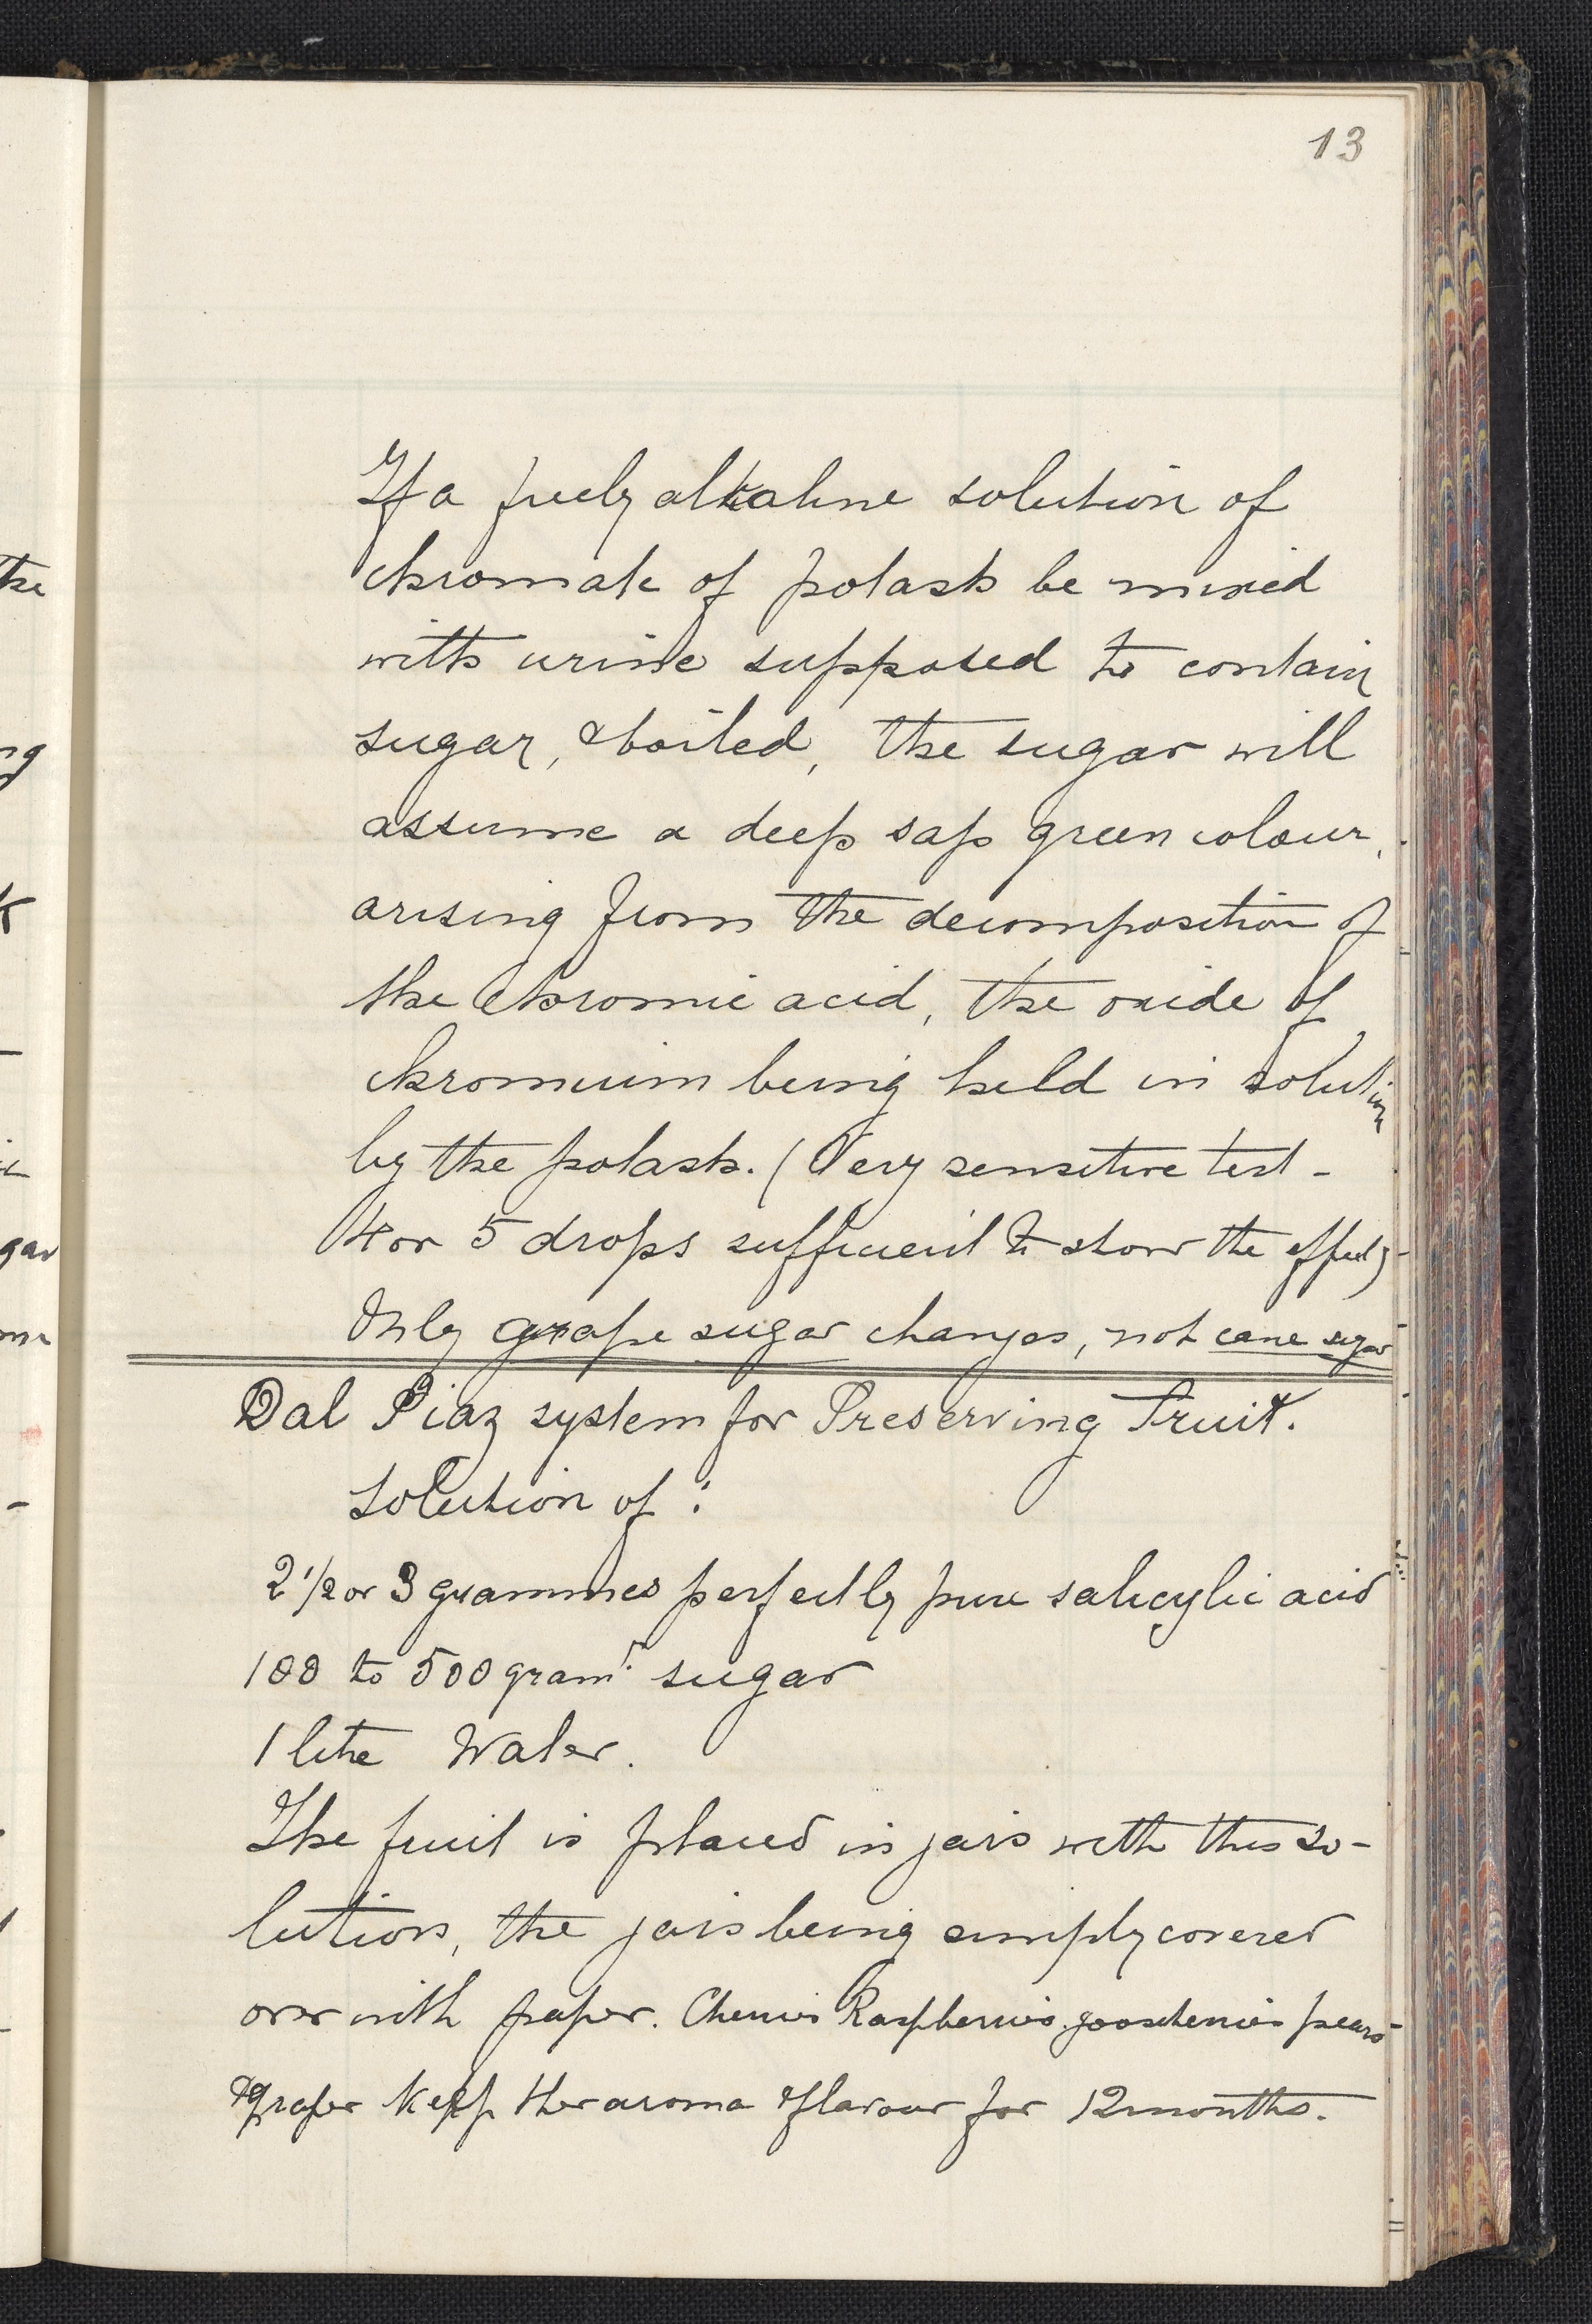 13
If a freely alkaline solution of
chromate of potash be mixed
with urine supposed to contain
sugar, & boiled, the sugar will
assume a deep sap green colour,
arising from the decomposition of
the Chromic acid, the oxide of
chromium being held in solution
by the potash. (Very sensitive test -
4 or 5 drops sufficient to show the effect)
Only grape sugar changes, not cane sugar
Dal Piaz system for Preserving Fruit.
Solution of :
2 1/2 or 3 grammes perfectly pure salicylic acid
100 to 500 gram^s. sugar
1 litre Water.
The fruit is placed in jars with this so-
lution, the jars being simply covered
over with paper. Cherries Raspberries. gooseberries pears
& grapes keep their aroma & flavour for 12 months.